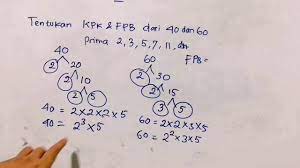 Tentukan KPK & FPB dari 40 dan 60
Prima 2, 3, 5, 7, 11, dst
40
2 20
2 10
2 5
60
2 30
2 15
3 5
FPB=
40 = 2 x 2 x 2 x 5
40 = 2³ x 5
60 = 2 x 2 x 3 x 5
60 = 2² x 3 x 5